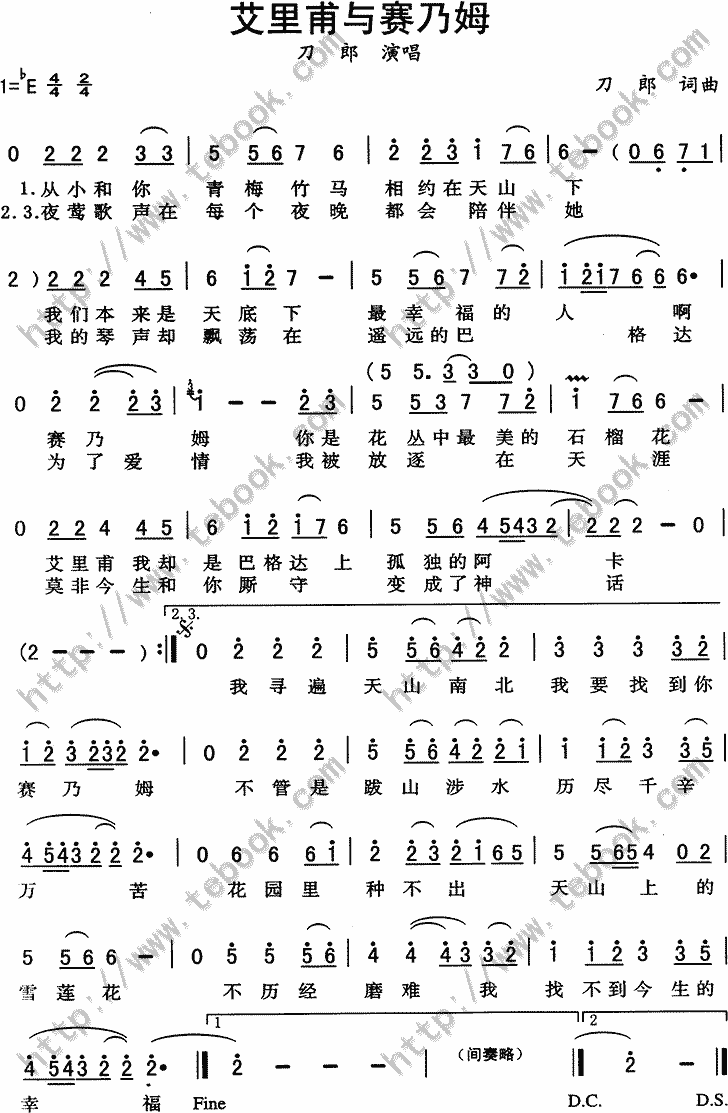 艾里甫与赛乃姆
刀 郎 演唱
1=♭E 4/4 2/4 刀 郎 词曲
0 2 2 2 3 3 | 5 5 6 7 6 | 2 2 3 1 7 6 | 6 − ( 0 6 7 1 |
1.从小和你 青梅竹马 相约在天山 下
2.3.夜莺歌声在每个夜晚 都会陪伴她
2 ) 2 2 2 4 5 | 6 1 2 7 − | 5 5 6 7 7 2 | 1 2 1 7 6 6 6• |
我们本来是天底下 最幸福的人 啊
我的琴声却飘荡在 遥远的巴 格达
(5 5. 3 3 0 )
0 2 2 2 3 | 1 − − 2 3 | 5 5 3 7 7 2 | 1 7 6 6 − |
赛乃 姆 你是花丛中最美的石榴花
为了爱情 我被放逐在天涯
0 2 2 4 4 5 | 6 1 2 1 7 6 | 5 5 6 4 5 4 3 2 2 | 2 2 2 − 0 |
艾里甫我却是巴格达上 孤独的阿 卡
莫非今生和你厮守 变成了神 话
2. 3.
(2 − − − ) :‖ 0 2 2 2 | 5 5 6 4 2 2 | 3 3 3 3 2 |
我寻遍 天山南北 我要找到你
1 2 3 2 3 2 2• | 0 2 2 2 | 5 5 6 4 2 2 1 | 1 1 2 3 3 5 |
赛乃 姆 不管是 跋山涉水 历尽千辛
4 5 4 3 2 2 2• | 0 6 6 6 1 | 2 2 3 2 1 6 5 | 5 5 6 5 4 0 2 |
万 苦 花园里 种不出 天山上的
5 5 6 6 − | 0 5 5 5 6 | 4 4 4 3 3 2 | 1 1 2 3 3 5 |
雪莲花 不历经 磨难 我 找不到今生的
1 2
4 5 4 3 2 2 2• ‖ 2 − − | (间奏略) ‖ 2 − ‖
幸 福 Fine D.C. D.S.
http://www.tebook.com